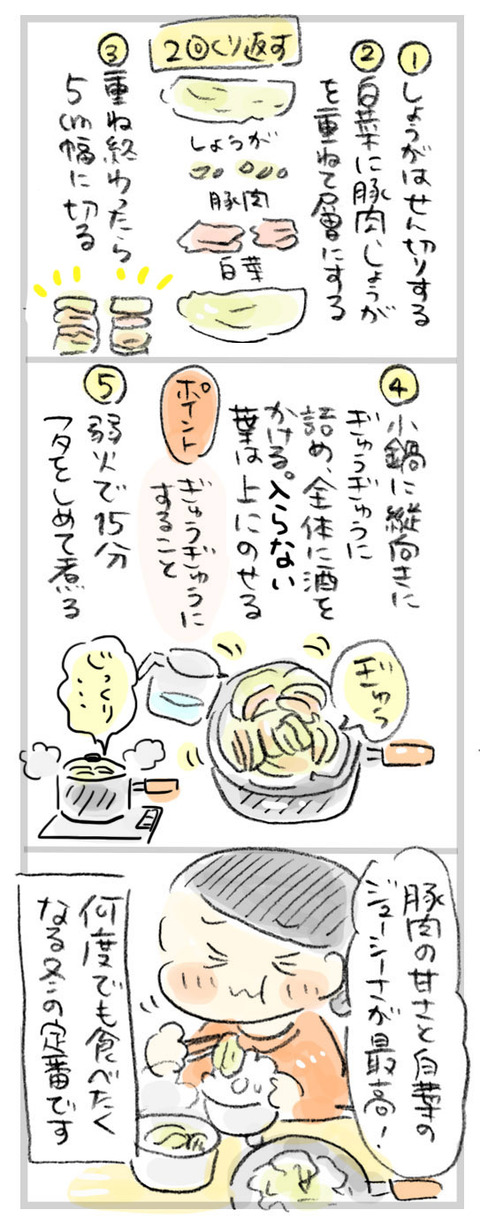 ①しょうがはせん切りする
②白菜に豚肉、しょうが
を重ねて層にする
2回くり返す
しょうが
豚肉
白菜
③重ね終わったら
5cm幅に切る
④小鍋に縦向きに
ぎゅうぎゅうに
詰め、全体に酒を
かける。入らない
葉は上にのせる
ポイント
ぎゅうぎゅうに
すること
⑤弱火で15分
フタをしめて煮る
ぎゅう
じっくり
...
豚肉の甘さと白菜の
ジューシーさが最高!
何度でも食べたく
なる冬の定番です